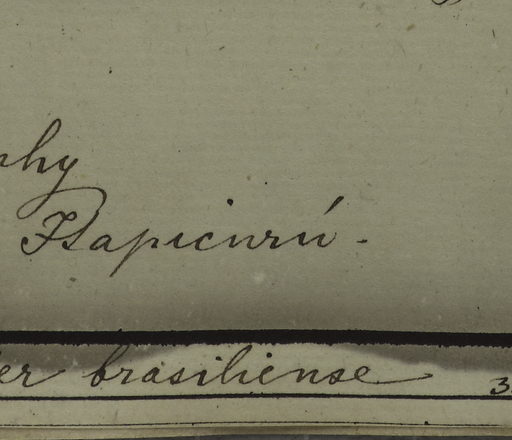 hy
Itapicurú.
er brasiliense 3